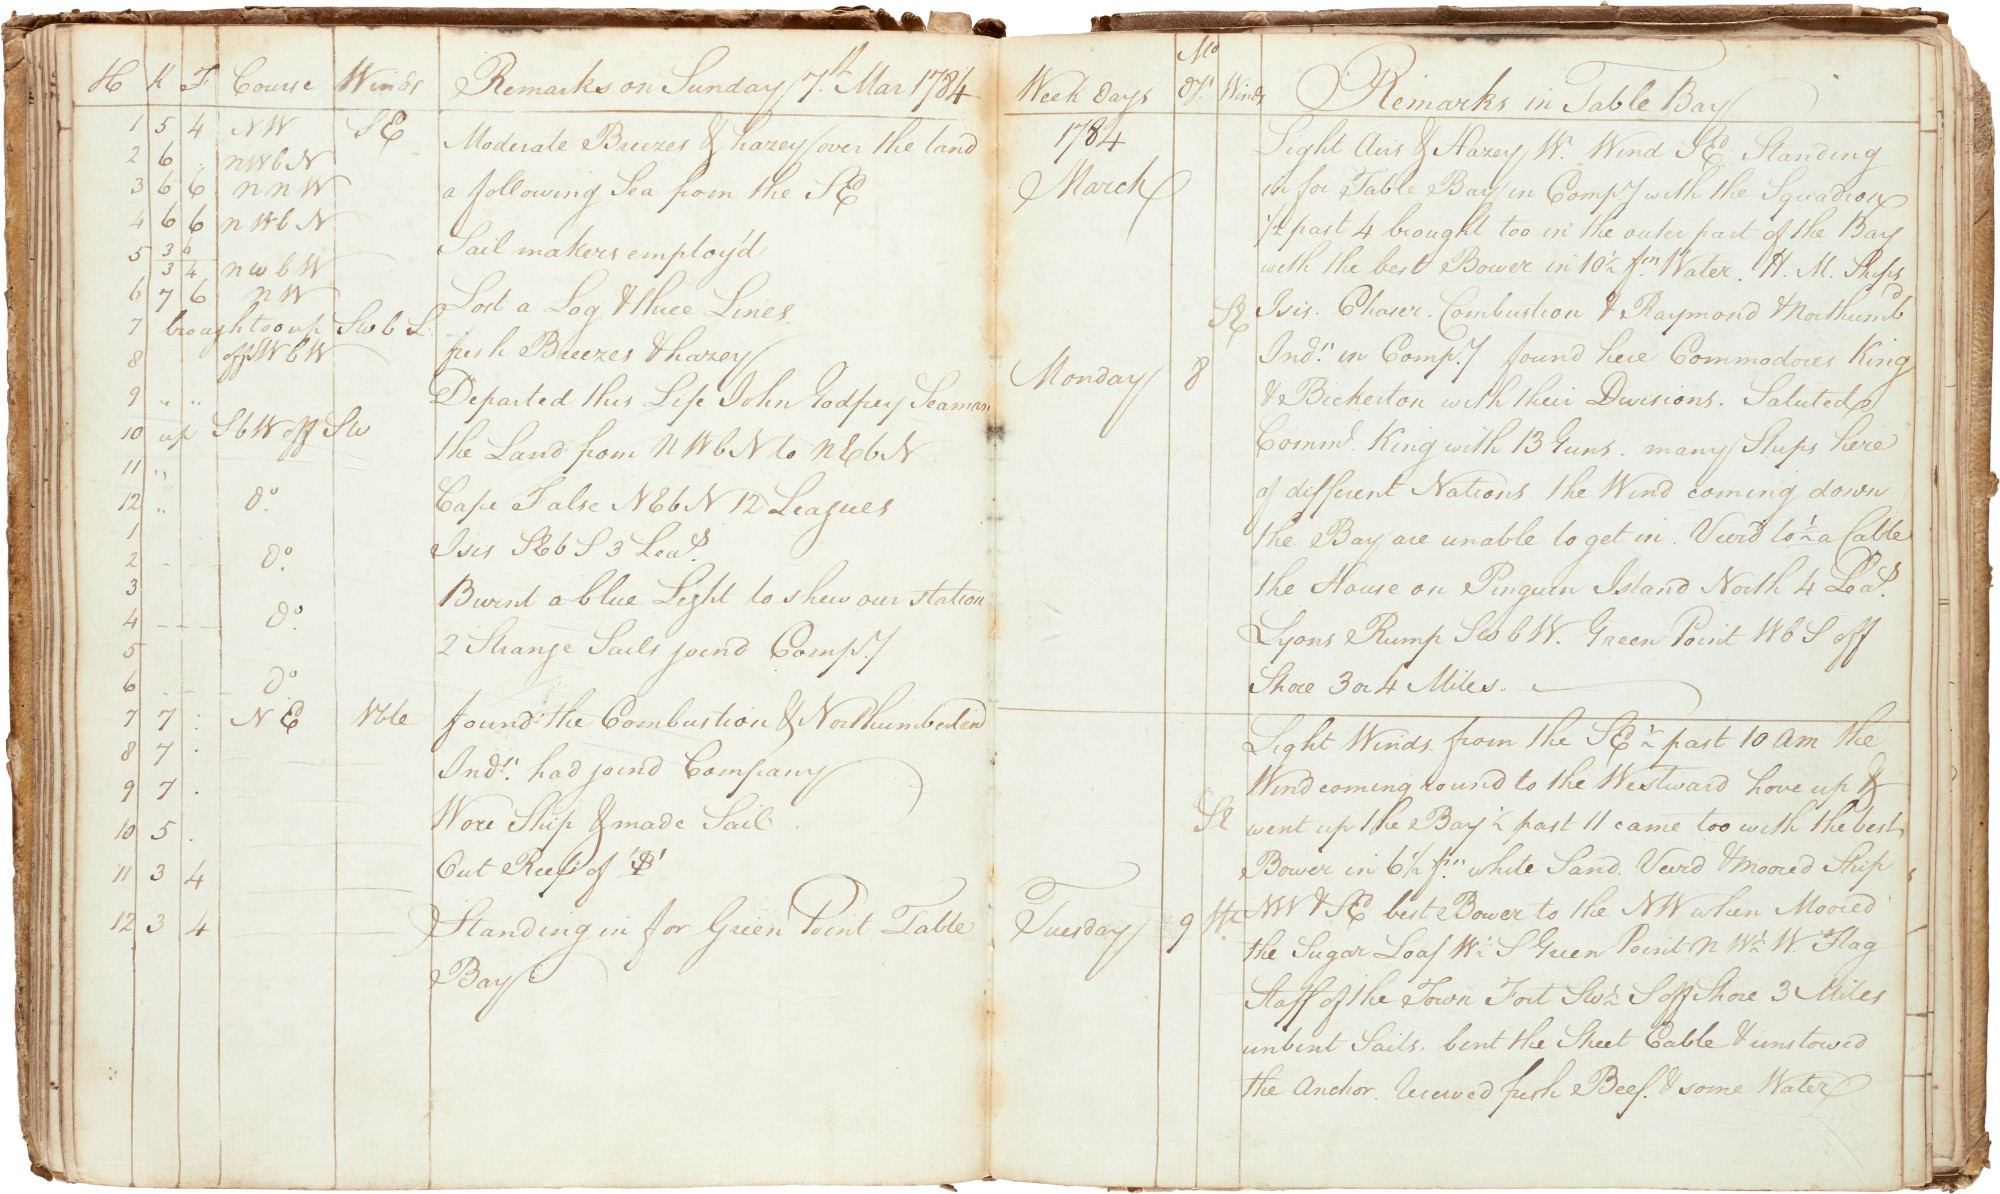 H K F Course Winds Remarks on Sunday 7th. Mar 1784
1 5 4 NW SE Moderate Breezes & hazey over the land
2 6 . nWbN
3 6 6 nnW a following Sea from the SE
4 6 6 nWbN
5 3 6 Sail makers employ'd
3 4 nwbW
6 7 6 nW Lost a Log & three Lines
7 brought too up Swb
8 off SWbW fresh Breezes & hazey
9 " " Departed this Life John Godfrey Seaman
10 up SbW off Sw the Land from NWbN to NEbN
11 "
12 " Do. Cape False NEbN 12 Leagues
1 Isis SEbS 3 Leas.
2 Do.
3 Burnt a blue Light to shew our station
4 Do.
5 2 Strange Sails joind Compy.
6 Do
7 7 : NE Vble found the Combustion & Northumberland
8 7 . Indn. had joind Company
9 7 . Wore Ship & made Sail
10 5 .
11 3 4 Out Reefs of
12 3 4 Standing in for Green Point Table
Bay
Week Days Mo Dys. Winds Remarks in Table Bay
1784
March
Light Airs & Hazey Wr. Wind SE Standing
in for Table Bay in Compy with the Squadron
½ past 4 brought too in the outer part of the Bay
with the best Bower in 10½ fm Water. H. M. Ships
SE Isis. Chaser. Combustion & Raymond & Northumbd
Monday 8 Indn. in Compy. found here Commodores King
& Bickerton with their Divisions. Saluted
Commr. King with 13 Guns. many Ships here
of different Nations. the Wind coming down
the Bay are unable to get in. Veerd to ½ a Cable
the House on Pinguin Island North 4 Leas.
Lyons Rump SwbW. Green Point WbS off
Shore 3 or 4 Miles.
Light Winds from the SE ½ past 10 am the
Wind coming round to the Westward hove up &
SE went up the Bay ½ past 11 came too with the best
Bower in 6½ fm. white Sand. Veerd & moored Ship
Tuesday 9 NW & SE best Bower to the NW when Moored
the Sugar Loaf W½S Green Point NW½W. Flag
Staff of the Town Fort Sw½S off Shore 3 Miles
unbent Sails. bent the Sheet Cable & unstowed
the Anchor. Received fresh Beef. & some Water